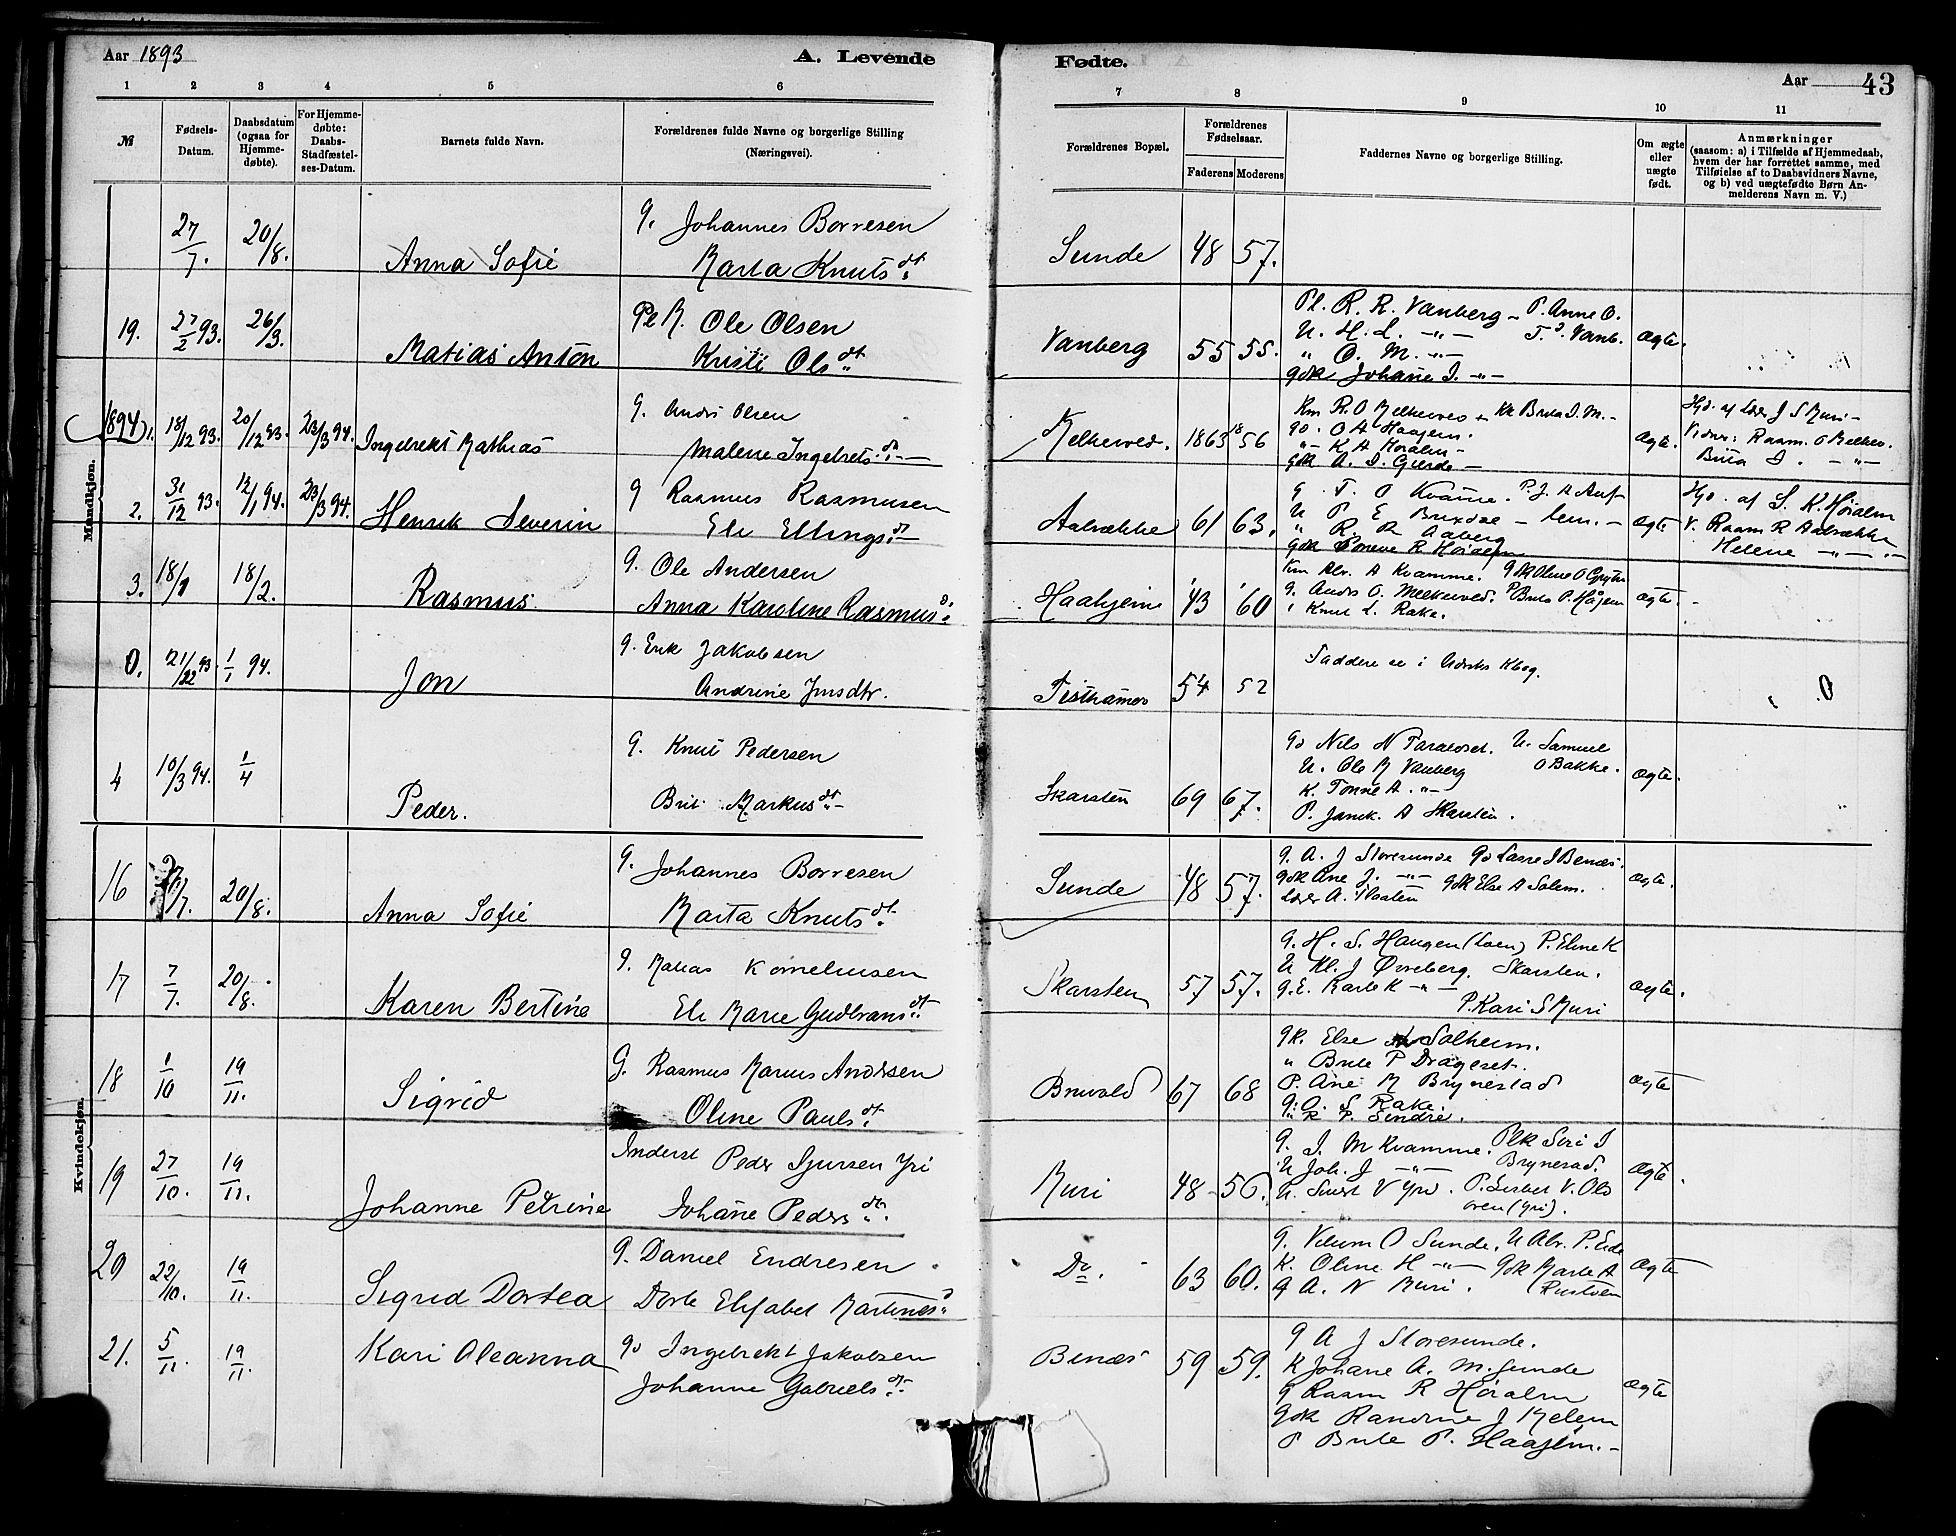 Aar 1893
A. Levende
Fødte.
Aar
43
1 2 3 4 5 6 7 8 9 10 11
№
Fødsels-
Datum.
Daabsdatum
(ogsaa for
Hjemme-
døbte).
For Hjemme-
døbte:
Daabs-
Stadfæstel-
ses-Datum.
Barnets fulde Navn.
Forældrenes fulde Navne og borgerlige Stilling
(Næringsvei).
Forældrenes Bopæl.
Forældrenes
Fødselsaar.
Faderens Moderens
Faddernes Navne og borgerlige Stilling.
Om ægte
eller
uægte
født.
Anmærkninger
(saasom: a) i Tilfælde af Hjemmedaab,
hvem der har forrettet samme, med
Tilføielse af to Daabsvidners Navne,
og b) ved uægtefødte Børn An-
melderens Navn m. V.)
Mandkjøn.
27/7. 20/8. Anna Sofie
G. Johannes Borresen
Marta Knutsdt.
Sunde 48 57.
19. 27/2 93. 26/3. Matias Anton
Ole Olsen
Kristi Olsdt.
Vanberg 55 55.
Pl. R. R. Vanberg - P. Anne O.
U. H. L. -"-
" O. M. -"-
gdk Johane I. -"-
ægte.
1894
1. 18/12 93. 20/12 93. 23/3 94. Ingebrekt Mathias
G. Anders Olsen
Malene Ingebretsd.
Melkeved. 1863 1856
G. O A Haagem.
" K A
gdk A. I. Gjerde -
ægte.
Hjd. af Lær J S Muri -
Vidner: Rasm. O Melkev.
Brita I. -"-
2. 31/12 93. 12/1 94. 23/3 94. Henrik Severin
G Rasmus Rasmusen
Eli Ellingsd.
Aabrække 61 63.
G. T. O Kvamme.
U P E Brixdal
" R. R Aaberg
ægte
Hjd. af S. K. Høialm
V. Rasm R Aabrække
Helene -"-
3. 18/1 18/2. Rasmus.
G. Ole Andersen
Anna Karoline Rasmusd.
Haahjem 43 60
G. Anders O. Melkeved. P Brita P. Håjem
" Knut L. Rake.
ægte.
0. 21/12 93. 1/1 94. Jon
G. Erik Jakobsen
Andrine Jonsdtr.
Tisthamar 54 52
Faddere se i Kbog.
0
4 10/3 94. 1/4 Peder.
G. Knut Pedersen
Brit Markusdt.
Skarsten 69 67.
Gd Nils N U. Samuel
U. Ole M Vanberg O Bakke.
K. Tonne A. -"-
P. A Skarsten.
ægte.
Kvindekjøn.
16 27/7. 20/8. Anna Sofie
G. Johannes Borresen
Marta Knutsdt.
Sunde 48 57.
G. A. J Storesunde Gd Lasse I Benæs.
gdk Ane J. -"- gdk Else A Solem.
Lær A.
ægte.
17 7/7. 20/8. Karen Bertine
G. Matias Kornelussen
Eli Marie Gudbransdt.
Skarsten 57 57.
G. H. S. Haugen (Loen) P. Eline K
U Kl. J Øvreberg. Skarsten.
G. E. Karl K -"-
P. Kari S Muri
ægte.
18 1/10 19/11. Sigrid
G. Rasmus Marius Andersen
Oline Paulsdt.
Bruvold 67 68
gk. Else Solheim.
" Brite P Drageset.
P. Ane M Brynestad
G. O. S Rake.
" R P. Sindre.
ægte
19 27/10. 19/11. Johanne Petrine
Inderst Peder Sjursen Yri
Johane Pedersdtr.
Muri 48 56.
G. I. M Kvamme. Plk Siri I
U Joh. J -"- Brynestad.
U. Sivert V Yri. P. Lisbet V. Ols
oren (Yri).
ægte.
20 22/10. 19/11. Sigrid Dortea
G. Daniel Endresen
Dorte Elisabet Martinesd.
Do. 63 60.
G. Vilum O Sunde. U Abr. P. Eide
K. Oline H -"- Gdk Marte A
G A. N Muri. (Rustøen
ægte
21. 5/11. 19/11. Kari Oleanna
Gd Ingebrekt Jakobsen
Johanne Gabrielsdt.
Benæs 59 59.
G A J Storesunde.
K Johane A. M. Sunde
G Rasm R Høialm
Gdk Randine J Melem
P Brite P. Haajem.
ægte